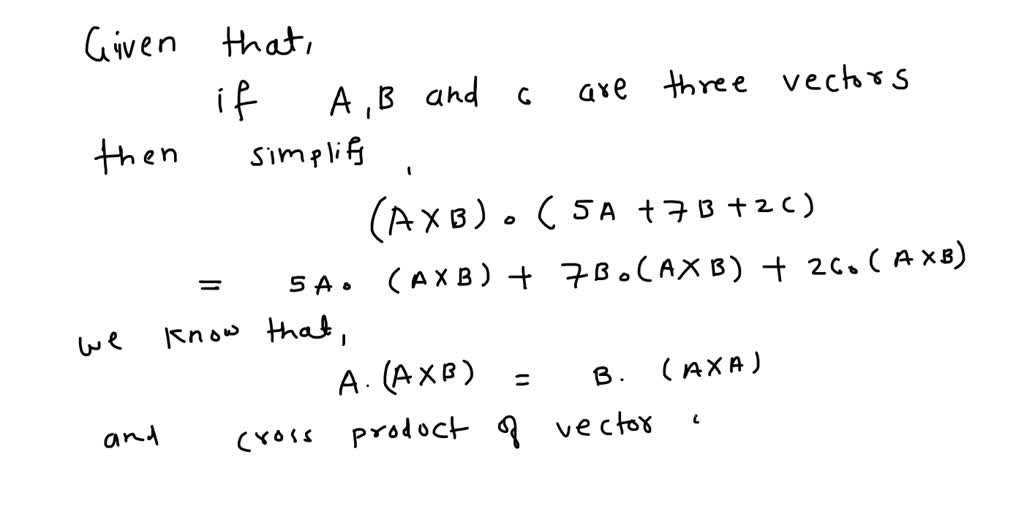 Given that,
if A, B and c are three vectors
then simplify,
(A X B) . ( 5A + 7B + 2C)
= 5A . (A X B) + 7B . (A X B) + 2C . (A X B)
we know that,
A . (A X B) = B . (A X A)
and cross product of vector c